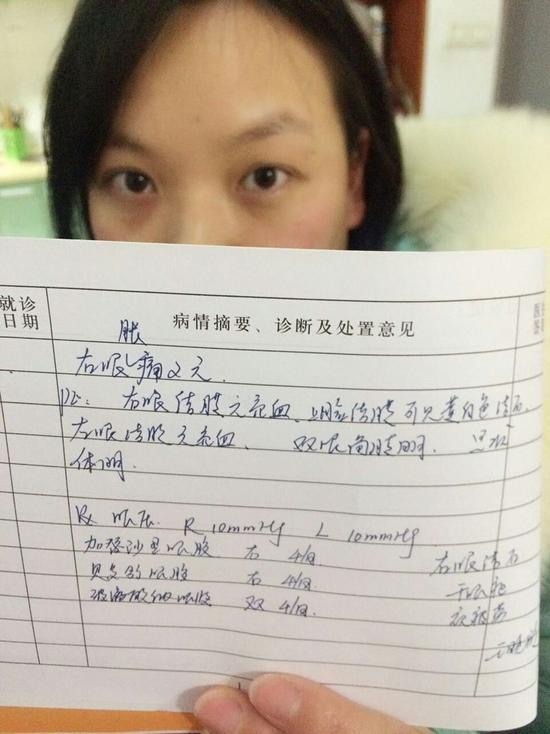 就诊日期
病情摘要、诊断及处置意见
胀
右眼痛2天.
PE: 右眼结膜充血、上睑结膜可见黄白色结石.
左眼结膜无充血、 双眼角膜明.
体明.
Rx 眼压 R 10mmHg L 10mmHg
加替沙星眼液 右 4/日
右眼结石
贝复舒眼液 右 4/日.
干眼症
玻璃酸钠眼液 双 4/日.